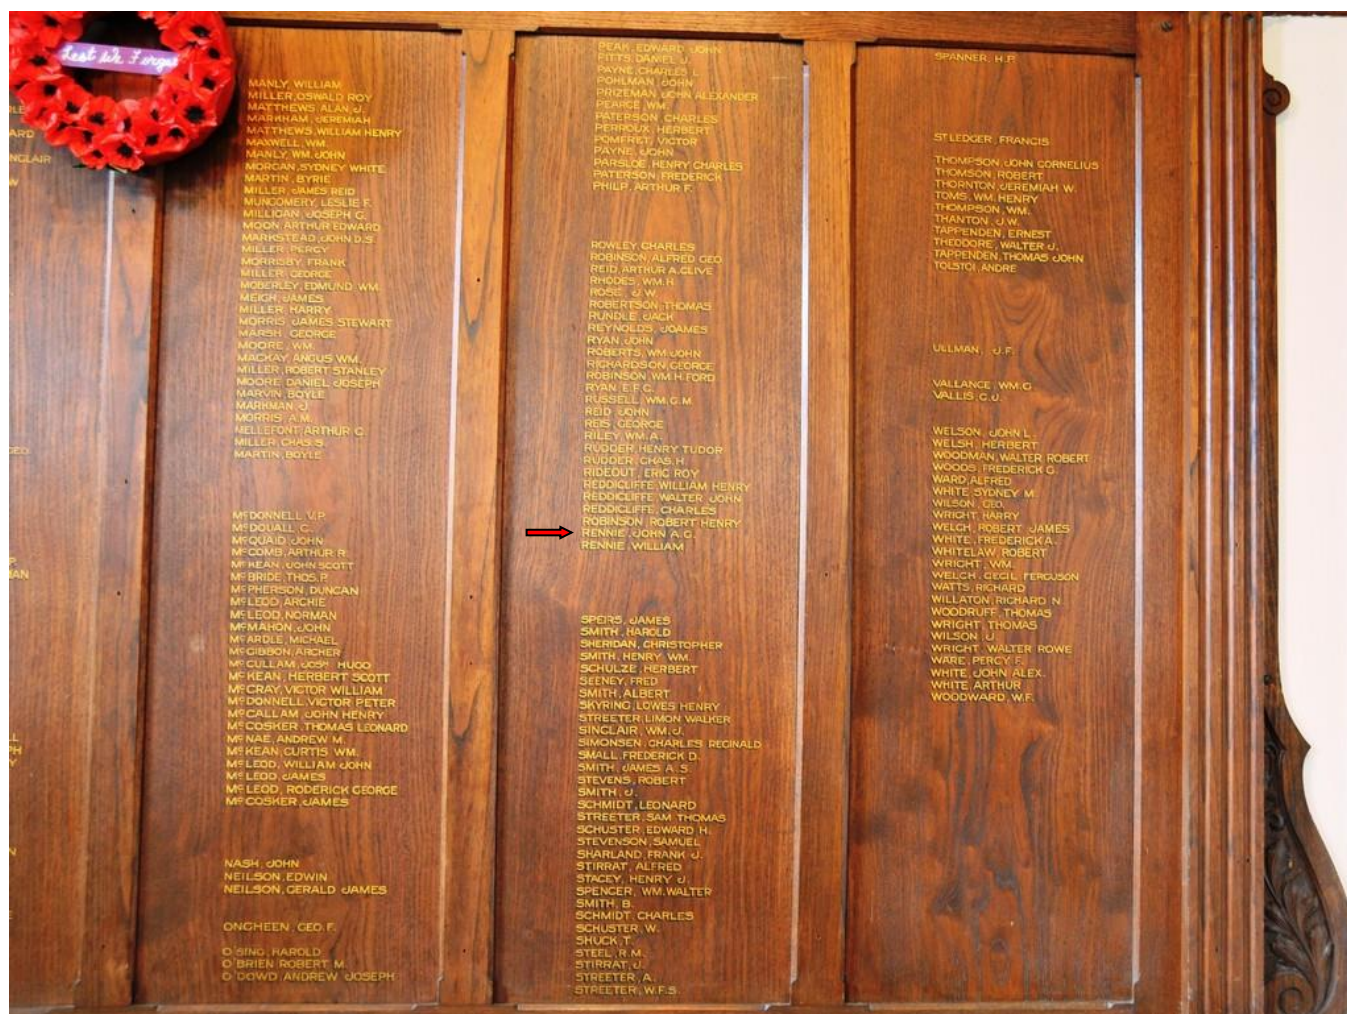 Lest We Forget
ARD
NCLAIR
W
DEO
P.
MAN
LL
PH
Y
N
E
MANLY, WILLIAM
MILLER, OSWALD ROY
MATTHEWS ALAN, J.
MARKHAM, JEREMIAH
MATTHEWS, WILLIAM HENRY
MAXWELL, WM.
MANLY, WM. JOHN
MORGAN, SYDNEY WHITE
MARTIN, BYRIE
MILLER, JAMES REID
MUNGOMERY, LESLIE F.
MILLIGAN, JOSEPH G.
MOON ARTHUR EDWARD
MARKSTEAD, JOHN D.S.
MILLER PERCY
MORRISBY, FRANK
MILLER GEORGE
MOBERLEY, EDMUND WM.
MEIGH, JAMES
MILLER HARRY
MORRIS JAMES STEWART
MARSH, GEORGE
MOORE, WM.
MACKAY ANGUS WM.
MILLER, ROBERT STANLEY
MOORE, DANIEL JOSEPH
MARVIN BOYLE
MARKMAN, J
MORRIS A.M.
MELLEFONT, ARTHUR C.
MILLER, CHAS S.
MARTIN, BOYLE
McDONNELL V.P.
McDOUALL C.
McQUAID JOHN
McCOMB, ARTHUR R.
McKEAN, JOHN SCOTT
McBRIDE, THOS. P.
McPHERSON, DUNCAN
McLEOD, ARCHIE
McLEOD, NORMAN
McMAHON, JOHN
McARDLE, MICHAEL
McGIBBON, ARCHER
McCULLAM, JOSH HUGO
McKEAN, HERBERT SCOTT
McCRAY, VICTOR WILLIAM
McDONNELL, VICTOR PETER
McCALLAM, JOHN HENRY
McCOSKER, THOMAS LEONARD
McNAE, ANDREW M.
McKEAN, CURTIS WM.
McLEOD, WILLIAM JOHN
McLEOD, JAMES
McLEOD, RODERICK GEORGE
McCOSKER, JAMES
NASH, JOHN
NEILSON, EDWIN
NEILSON, GERALD JAMES
ONGHEEN, GEO. F.
O'SING, HAROLD
O'BRIEN ROBERT M.
O'DOWD ANDREW JOSEPH
PEAK, EDWARD JOHN
PITTS, DANIEL J.
PAYNE, CHARLES L.
POHLMAN, JOHN
PRIZEMAN, JOHN ALEXANDER
PEARCE, WM.
PATERSON, CHARLES
PERROUX, HERBERT
POMFRET, VICTOR
PAYNE, JOHN
PARSLOE, HENRY CHARLES
PATERSON, FREDERICK
PHILP, ARTHUR F.
ROWLEY, CHARLES
ROBINSON, ALFRED GEO
REID, ARTHUR A. CLIVE
RHODES, WM. H
ROSE, J.W.
ROBERTSON, THOMAS
RUNDLE, JACK
REYNOLDS, JOAMES
RYAN, JOHN
ROBERTS, WM JOHN
RICHARDSON GEORGE
ROBINSON WM. H. FORD
RYAN E.F.C.
RUSSELL, WM. G.M.
REID JOHN
REIS GEORGE
RILEY, WM. A.
RUDDER HENRY TUDOR
RUDDER, CHAS. H
RIDEOUT, ERIC ROY
REDDICLIFFE WILLIAM HENRY
REDDICLIFFE WALTER JOHN
REDDICLIFFE, CHARLES
ROBINSON ROBERT HENRY
RENNIE, JOHN A.G.
RENNIE, WILLIAM
SPEIRS, JAMES
SMITH, HAROLD
SHERIDAN, CHRISTOPHER
SMITH, HENRY WM.
SCHULZE, HERBERT
SEENEY, FRED
SMITH, ALBERT
SKYRING, LOWES HENRY
STREETER, LIMON WALKER
SINCLAIR, WM. J.
SIMONSEN, CHARLES REGINALD
SMALL, FREDERICK D.
SMITH, JAMES A.S.
STEVENS, ROBERT
SMITH, J.
SCHMIDT, LEONARD
STREETER, SAM THOMAS
SCHUSTER, EDWARD H.
STEVENSON, SAMUEL
SHARLAND, FRANK J.
STIRRAT, ALFRED
STACEY, HENRY J.
SPENCER, WM. WALTER
SMITH, B.
SCHMIDT, CHARLES
SCHUSTER, W.
SHUCK, T.
STEEL, R.M.
STIRRAT, J.
STREETER, A.
STREETER, W.F.S.
SPANNER, H.P.
ST LEDGER, FRANCIS
THOMPSON, JOHN CORNELIUS
THOMSON, ROBERT
THORNTON, JEREMIAH W.
TOMS, WM. HENRY
THOMPSON, WM.
THANTON, J.W.
TAPPENDEN, ERNEST
THEODORE, WALTER J.
TAPPENDEN, THOMAS JOHN
TOLSTOI ANDRE
ULLMAN, J.F.
VALLANCE, WM. G
VALLIS C.J.
WELSON, JOHN L.
WELSH, HERBERT
WOODMAN, WALTER ROBERT
WOODS, FREDERICK G.
WARD, ALFRED
WHITE SYDNEY M.
WILSON, GEO.
WRIGHT, HARRY
WELCH, ROBERT JAMES
WHITE, FREDERICK A.
WHITELAW, ROBERT
WRIGHT, WM.
WELCH, CECIL FERGUSON
WATTS, RICHARD
WILLATON, RICHARD N.
WOODRUFF, THOMAS
WRIGHT, THOMAS
WILSON, J.
WRIGHT WALTER ROWE
WARE, PERCY F.
WHITE, JOHN ALEX.
WHITE ARTHUR
WOODWARD, W.F.